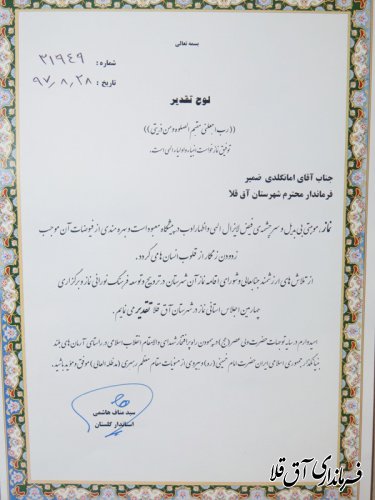 بسمه تعالی
شماره : ۳۱۹۴۹
تاریخ : ۹۷٫۸٫۲۸
لوح تقدیر
((رب اجعلنی مقیم الصلوه و من ذریتی))
توفیق نماز خواست انبیاء و اولیاء الهی است.
جناب آقای امانگلدی ضمیر
فرماندار محترم شهرستان آق قلا
نماز، موهبتی بی بدیل و سرچشمه ی فیض لایزال الهی و اظهار ادب در پیشگاه معبود است و بهره مندی از فیوضات آن موجب
زدودن زنگار از قلوب انسان ها می گردد.
از تلاش های ارزشمند جنابعالی و شورای اقامه نماز آن شهرستان در ترویج و توسعه فرهنگ نورانی نماز و برگزاری
چهارمین اجلاس استانی نماز در شهرستان آق قلا تقدیر می نمایم.
امیدوارم در سایه توجهات حضرت ولی عصر (عج) ادامه دهنده راه پرافتخار شهدای والامقام انقلاب اسلامی در راستای آرمان های بلند
بنیانگذار جمهوری اسلامی ایران حضرت امام خمینی (ره) و پیروی از منویات مقام معظم رهبری (مدظله العالی) موفق و مؤید باشید.
سید مناف هاشمی
استاندار گلستان
فرمانداری آق قلا